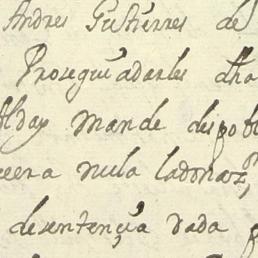 Andres Gutierres de
Prosegui adarles dha
Alday Mande despobl
nula ladonaz.on
desentençia dada